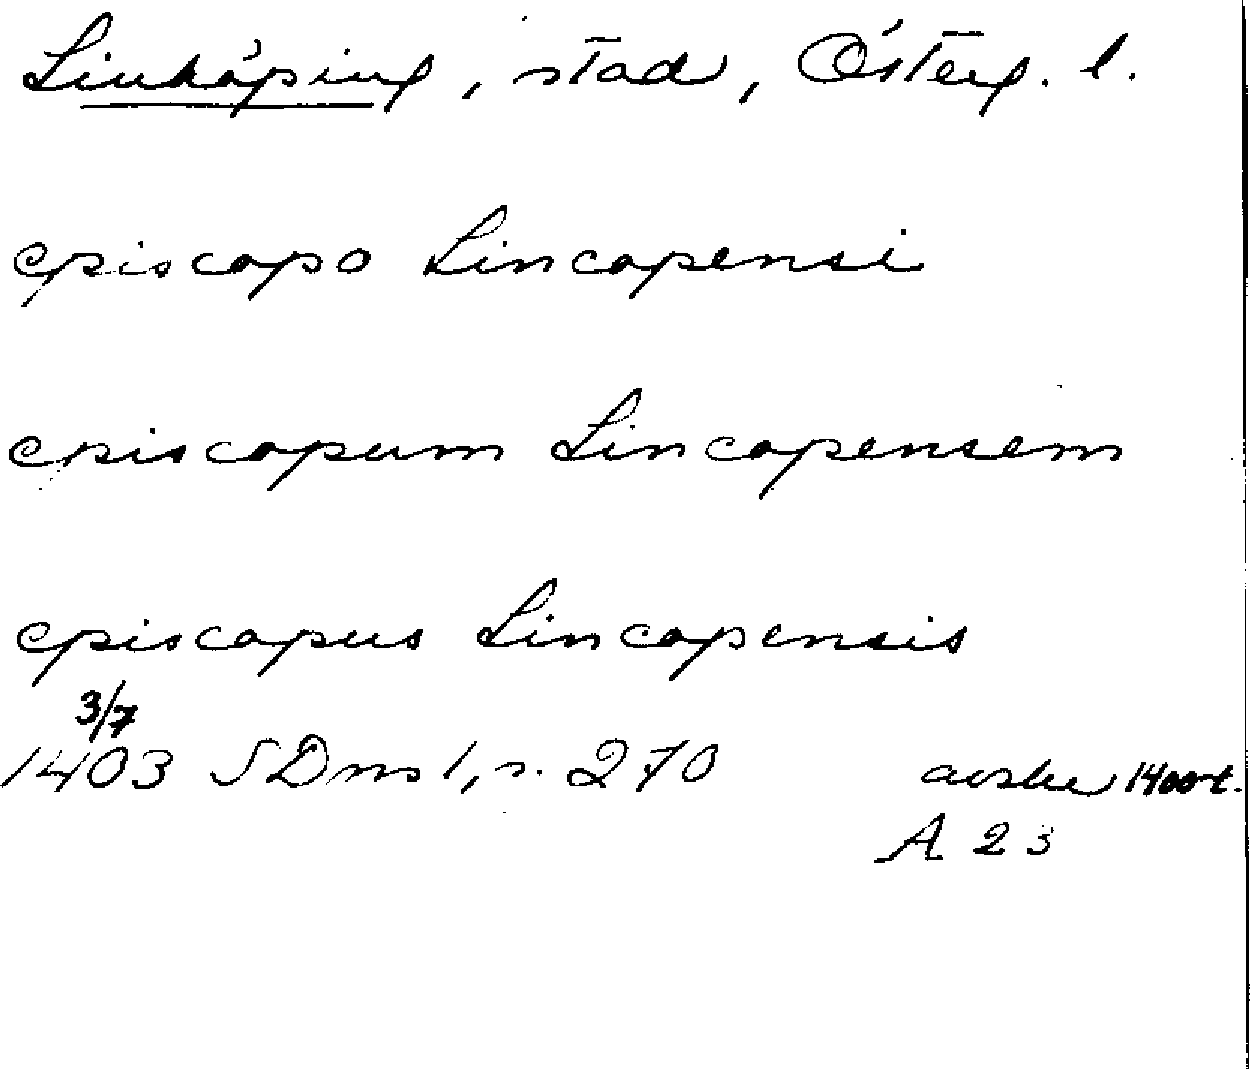 Linköping, stad, Österg. l.
episcopo Lincopensi
episcopum Lincopensem
episcopus Lincopensis
3/7
1403 SDns 1, s. 270 avskr 1400-t.
A 23